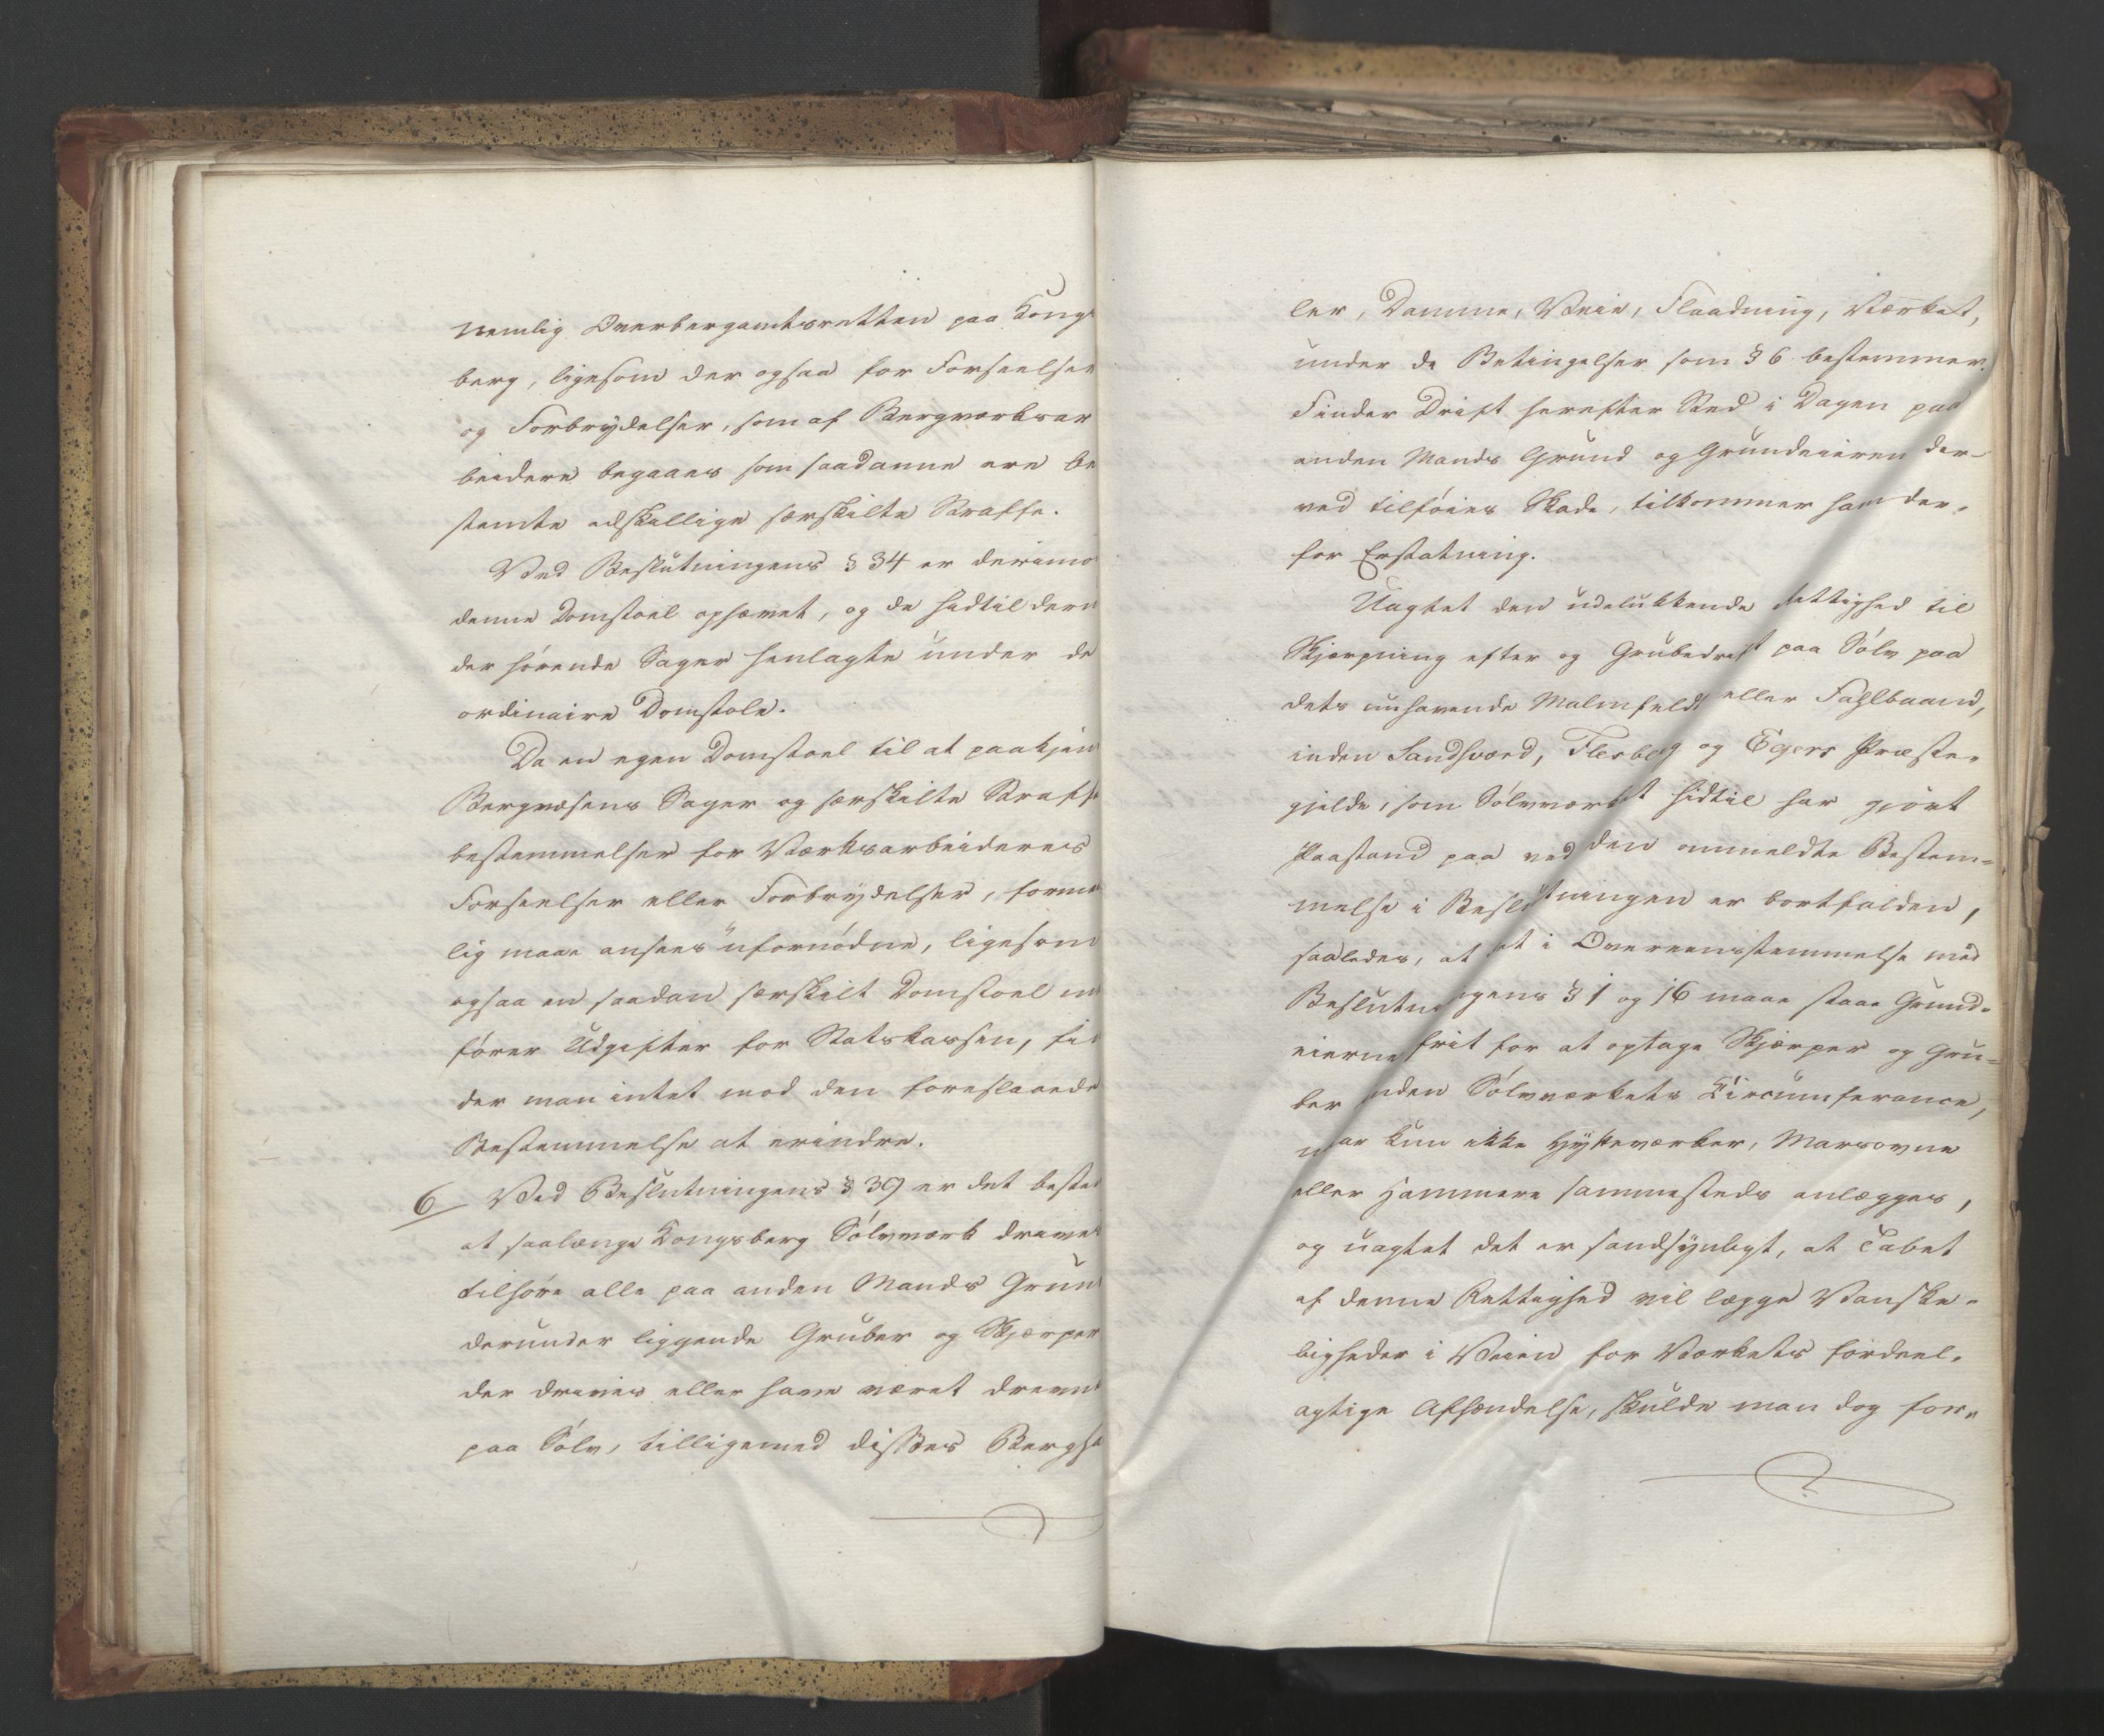 nemlig Overbergamtsretten paa Kongs
berg, ligesom der ogsaa for Forseelser
og Forbrydelser, som af Bergværksar
beidere begaaes som saadanne ere be
stemte adskillige særskilte Straffe.
Ved Beslutningens § 34 er derimo
denne Domstoel ophævet, og de hidtil deru
der hørende Sager henlagte under de
ordinaire Domstole.
Da en egen Domstoel til at paakjen
Bergvæsens Sager og særskilte Straffe
bestemmelser for Værksarbeideres
Forseelser eller Forbrydelser, forme
lig maae ansees ufornødne, ligesom
ogsaa en saadan særskilt Domstoel m
fører Udgifter for Statskassen, fin
der man intet mod den foreslaaede
Bestemmelse at erindre.
6 Ved Beslutningens § 39 er det bestem
at saalænge Kongsberg Sølvværk drives
tilhøre alle paa anden Mands Grun
derunder liggende Gruber og Skjærper
der drives eller have været drevne
paa Sølv, tilligemed disses Bergha
ler, Damme, Veie, Flaadning, Værket,
under de Betingelser som § 6 bestemmer.
Finder Drift herefter Sted i Dagen paa
anden Mands Grund og Grundeieren der-
ved tilføies Skade, tilkommer ham der-
for Erstatning.
Uagtet den udelukkende Rettighed til
Skjærpning efter og Grubedrift paa Sølv paa
dets iinhavende Malmfeldt eller Fahlbaand,
inden Sandsværd, Flesberg og Egers Præste-
gjelde, som Sølvværket hidtil har gjort
Paastand paa ved den ommeldte Bestem-
melse i Beslutningen er bortfalden,
saaledes, at det i Overeensstemmelse med
Beslutningens § 1 og 16 maae staae Grund-
eierne frit for at optage Skjærper og Gru-
ber inden Sølvværkets Circumference,
naar kun ikke Hytteværker, Masovne
eller Hammere sammesteds anlægges,
og uagtet det er sandsynligt, at Tabet
af denne Rettighed vil lægge Vanske-
ligheder i Veien for Værkets fordeel-
agtige Afhændelse, skulde man dog for-